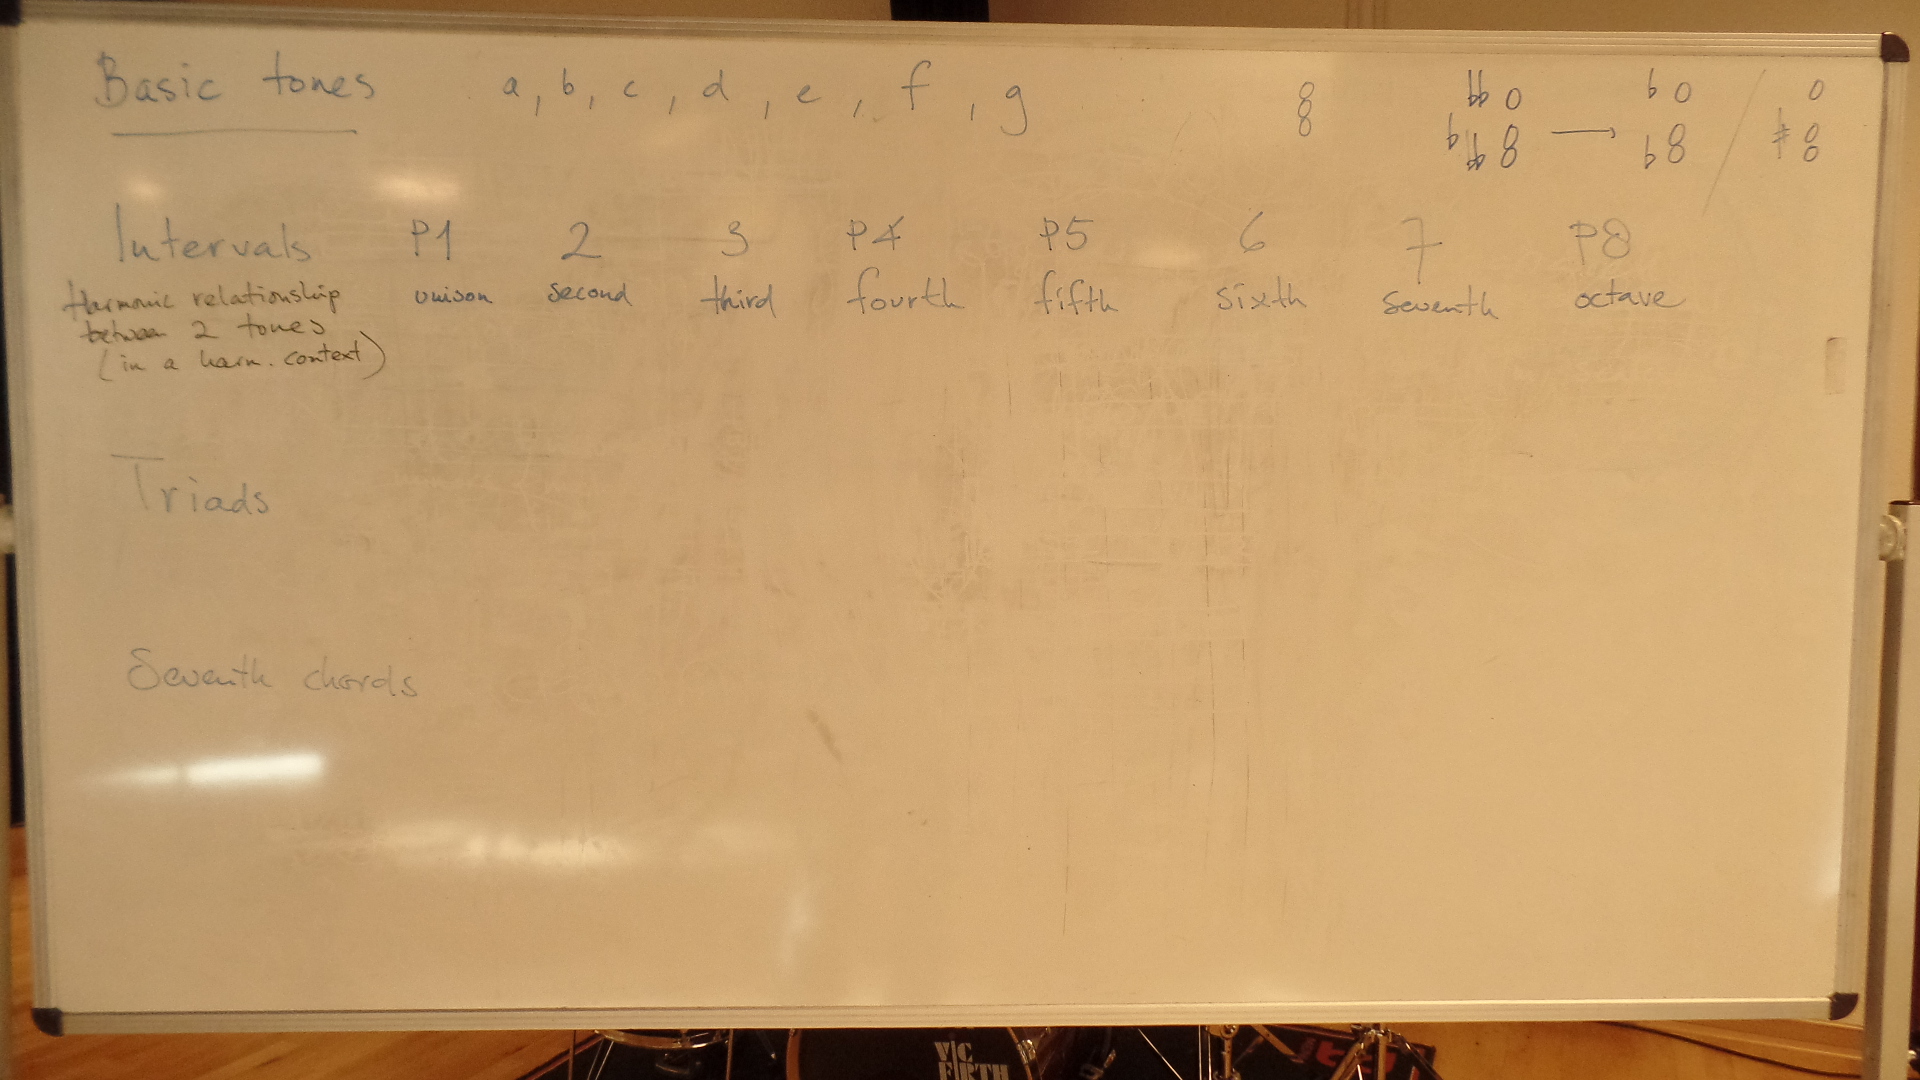 Basic tones a, b, c, d, e, f, g
Intervals P1 2 3 P4 P5 6 7 P8
unison second third fourth fifth sixth seventh octave
Harmonic relationship
between 2 tones
(in a harm. context)
Triads
Seventh chords
VIC
FIRTH